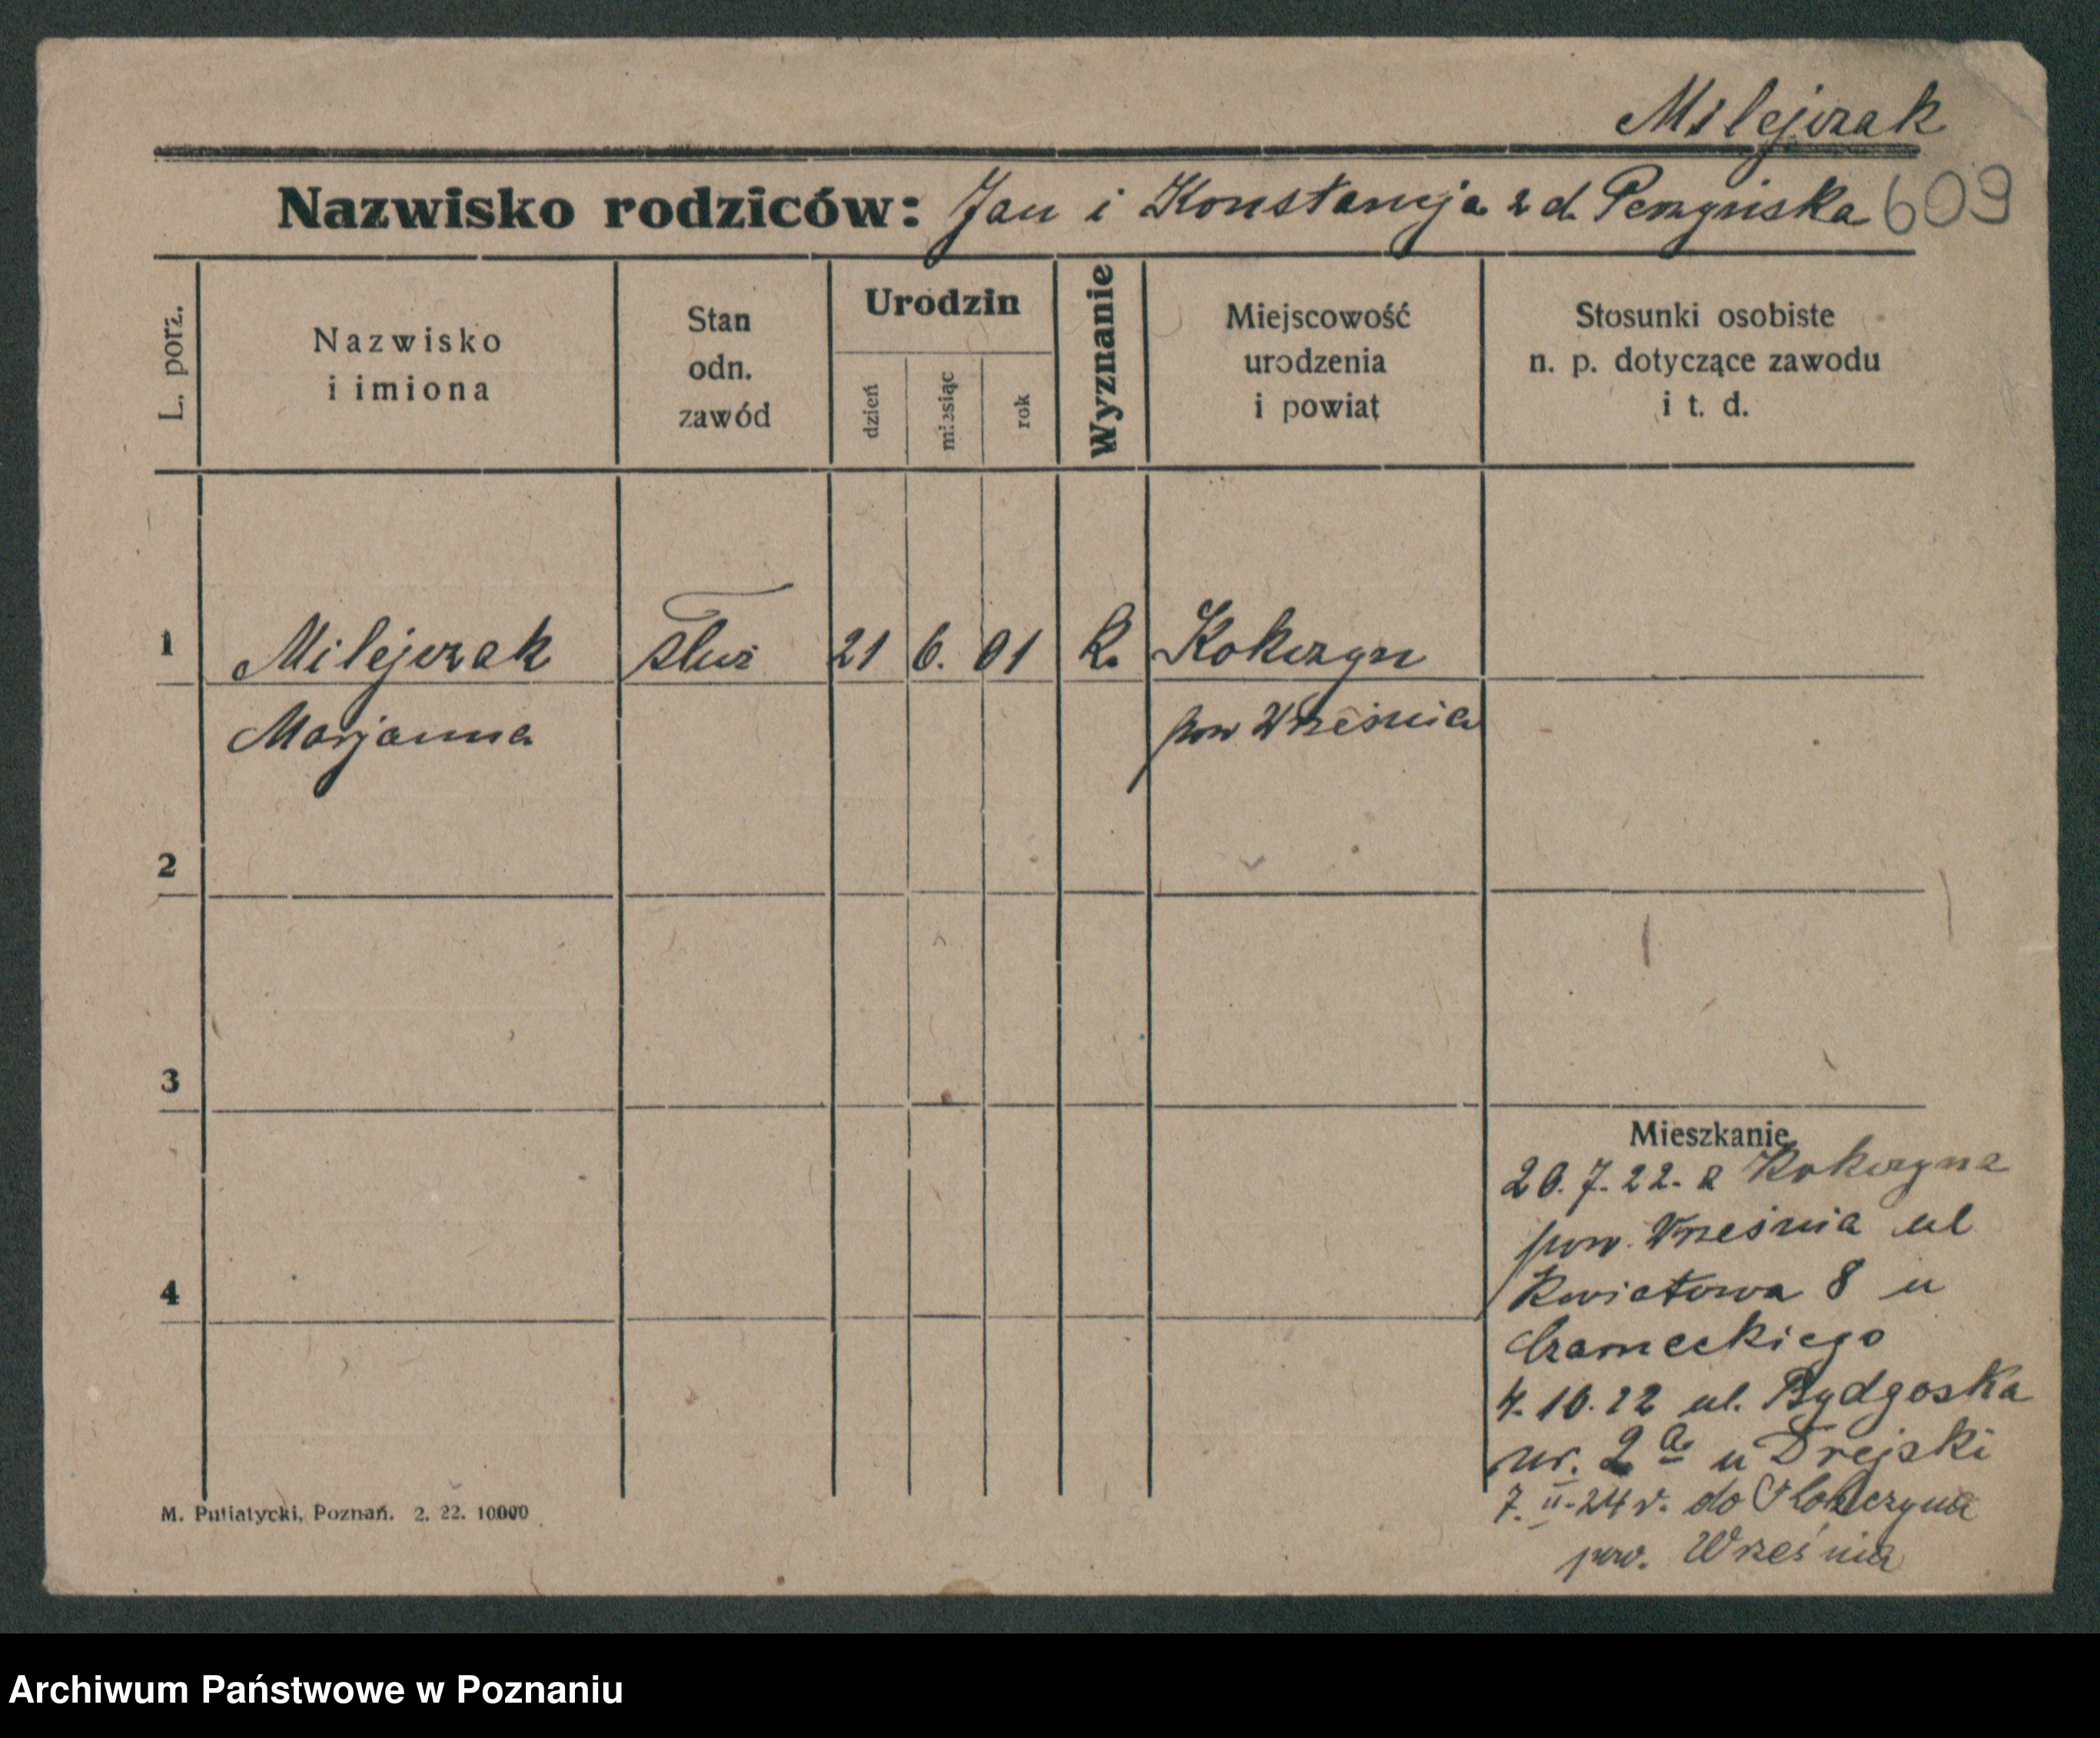 Milejczak
Nazwisko rodziców: Jan i Konstancja z d. 609
L. porz.
Nazwisko
i imiona
Stan
odn.
zawód
Urodzin
dzień
miesiąc
rok
Wyznanie
Miejscowość
urodzenia
i powiat
Stosunki osobiste
n. p. dotyczące zawodu
i t. d.
1 Milejczak służ 21 6. 01 k. Kokczyn
Marjanna pow Września
2
3
4
Mieszkanie
20. 7. 22. z Kokczyna
pow. Września ul
Kwiatowa 8 u
Czarneckiego
4. 10. 22 ul. Bydgoska
nr. 2a u Drejski
7. II. 24 r. do
pow. Września
M. Putiatycki, Poznań. 2. 22. 10000
Archiwum Państwowe w Poznaniu